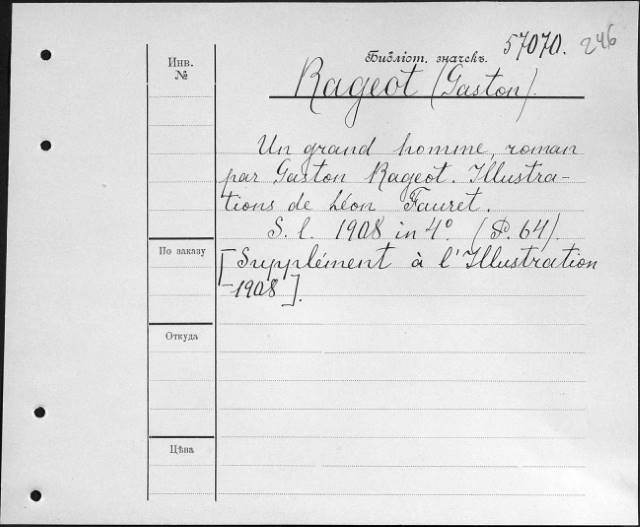 57070. 246
Инв.
№
Библіот. значекъ.
Rageot (Gaston).
Un grand homme, roman
par Gaston Rageot. Illustra-
tions de Léon Fauret.
S. l. 1908 in 4º. (P. 64).
По заказу
[Supplément à l'Illustration
-1908].
Откуда
Цѣна